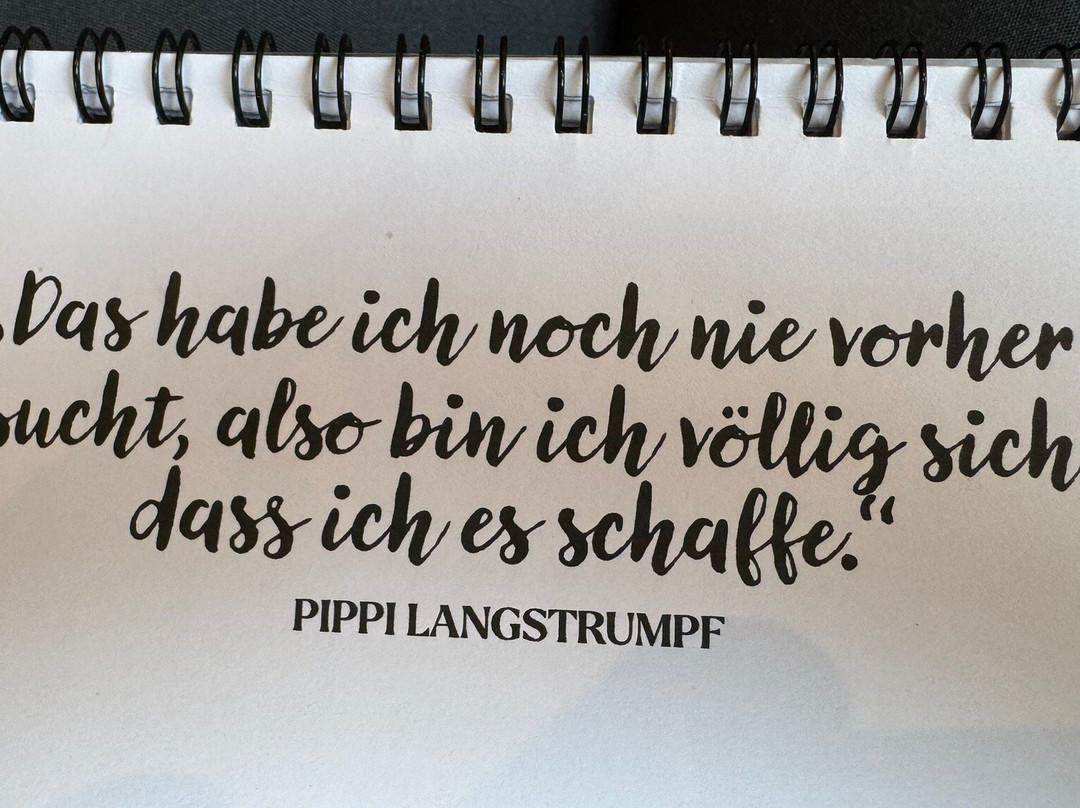 „Das habe ich noch nie vorher
sucht, also bin ich völlig sich
dass ich es schaffe.“
PIPPI LANGSTRUMPF